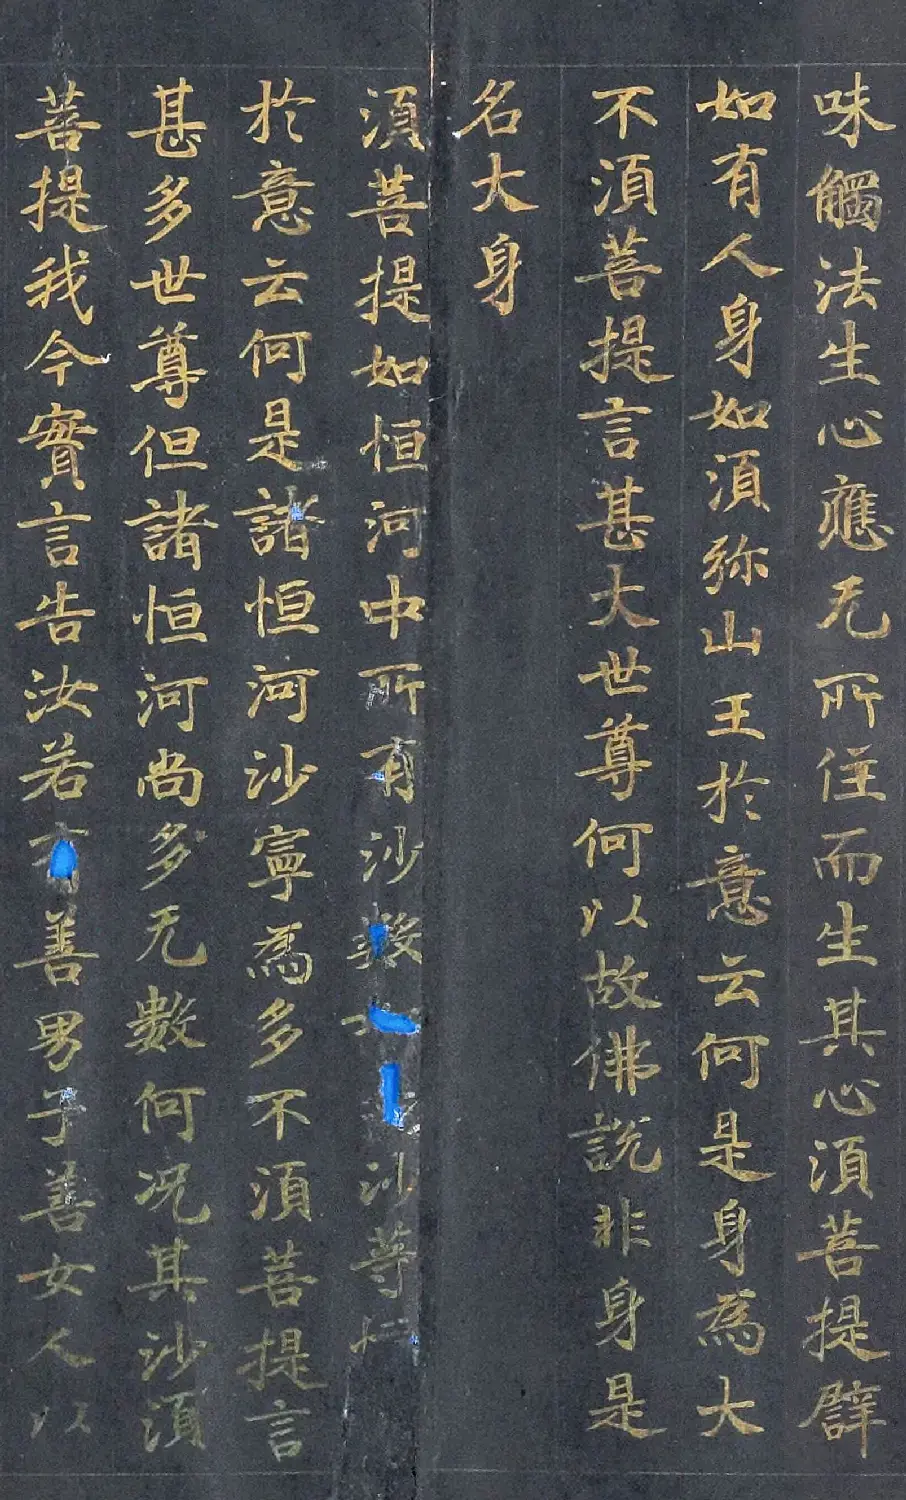 味觸法生心應无所住而生其心須菩提譬
如有人身如須弥山王於意云何是身為大
不須菩提言甚大世尊何以故佛說非身是
名大身
須菩提如恒河中所有沙數沙等
於意云何是諸恒河沙寧為多不須菩提言
甚多世尊但諸恒河尚多无數何况其沙須
菩提我今實言告汝若善男子善女人以